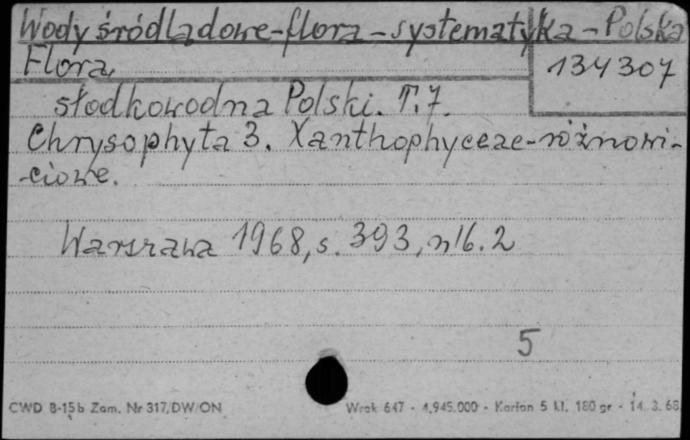 Wody śródlądowe - flora - systematyka - Polska
Flora
134307
słodkowodna Polski. T. 7.
Chrysophyta 3. Xanthophyceae - różnowi-
-ciowe.
Warszawa 1968, s. 393, nlb. 2
5
CWD B-15b Zam. Nr 317/DW/ON Wrok 647 - 4.945.000 - Karton 5 kl. 180 gr - 14. 3. 68